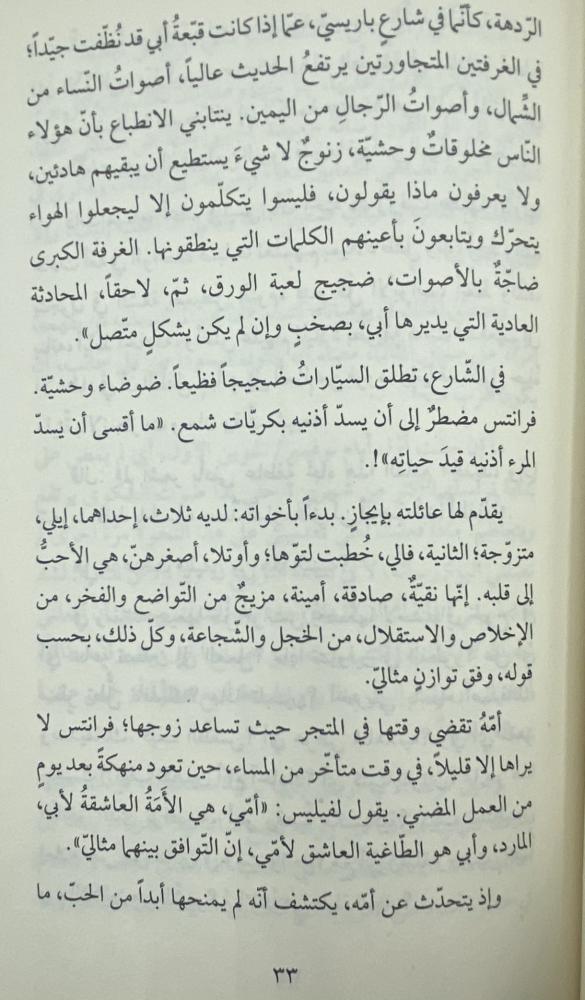 الرّدهة، كأنّما في شارعٍ باريسيّ، عمّا إذا كانت قبّعةُ أبي قد نُظّفت جيّداً؛
في الغرفتين المتجاورتين يرتفعُ الحديث عالياً، أصواتُ النّساء من
الشِّمال، وأصواتُ الرّجالِ من اليمين. ينتابني الانطباع بأنّ هؤلاء
النّاس مخلوقاتٌ وحشيّة، زنوجٌ لا شيءَ يستطيع أن يبقيهم هادئين،
ولا يعرفون ماذا يقولون، فليسوا يتكلّمون إلا ليجعلوا الهواء
يتحرّك ويتابعونَ بأعينهم الكلمات التي ينطقونها. الغرفة الكبرى
ضاجّةٌ بالأصوات، ضجيج لعبة الورق، ثمّ، لاحقاً، المحادثة
العادية التي يديرها أبي، بصخبٍ وإن لم يكن يشكلٍ متّصل».
في الشّارع، تطلق السيّاراتُ ضجيجاً فظيعاً. ضوضاء وحشيّة.
فرانتس مضطرٌ إلى أن يسدّ أذنيه بكريّات شمع. «ما أقسى أن يسدّ
المرء أذنيه قيدَ حياتِه»!.
يقدّم لها عائلته بإيجازٍ. بدءاً بأخواته: لديه ثلاث، إحداهما، إيلي،
متزوّجة؛ الثانية، فالي، خُطبت لتوّها؛ وأوتلا، أصغرهنّ، هي الأحبُّ
إلى قلبه. إنّها نقيّةٌ، صادقة، أمينة، مزيجٌ من التّواضع والفخر، من
الإخلاص والاستقلال، من الخجل والشّجاعة، وكلّ ذلك، بحسب
قوله، وفق توازنٍ مثاليّ.
أمّهُ تقضي وقتها في المتجر حيث تساعد زوجها؛ فرانتس لا
يراها إلا قليلاً، في وقت متأخّر من المساء، حين تعود منهكةً بعد يومٍ
من العمل المضني. يقول لفيليس: «أمّي، هي الأَمَةُ العاشقةُ لأبي،
المارد، وأبي هو الطّاغية العاشق لأمّي، إنّ التّوافق بينهما مثاليّ».
وإذ يتحدّث عن أمّه، يكتشف أنّه لم يمنحها أبداً من الحبّ، ما
٣٣